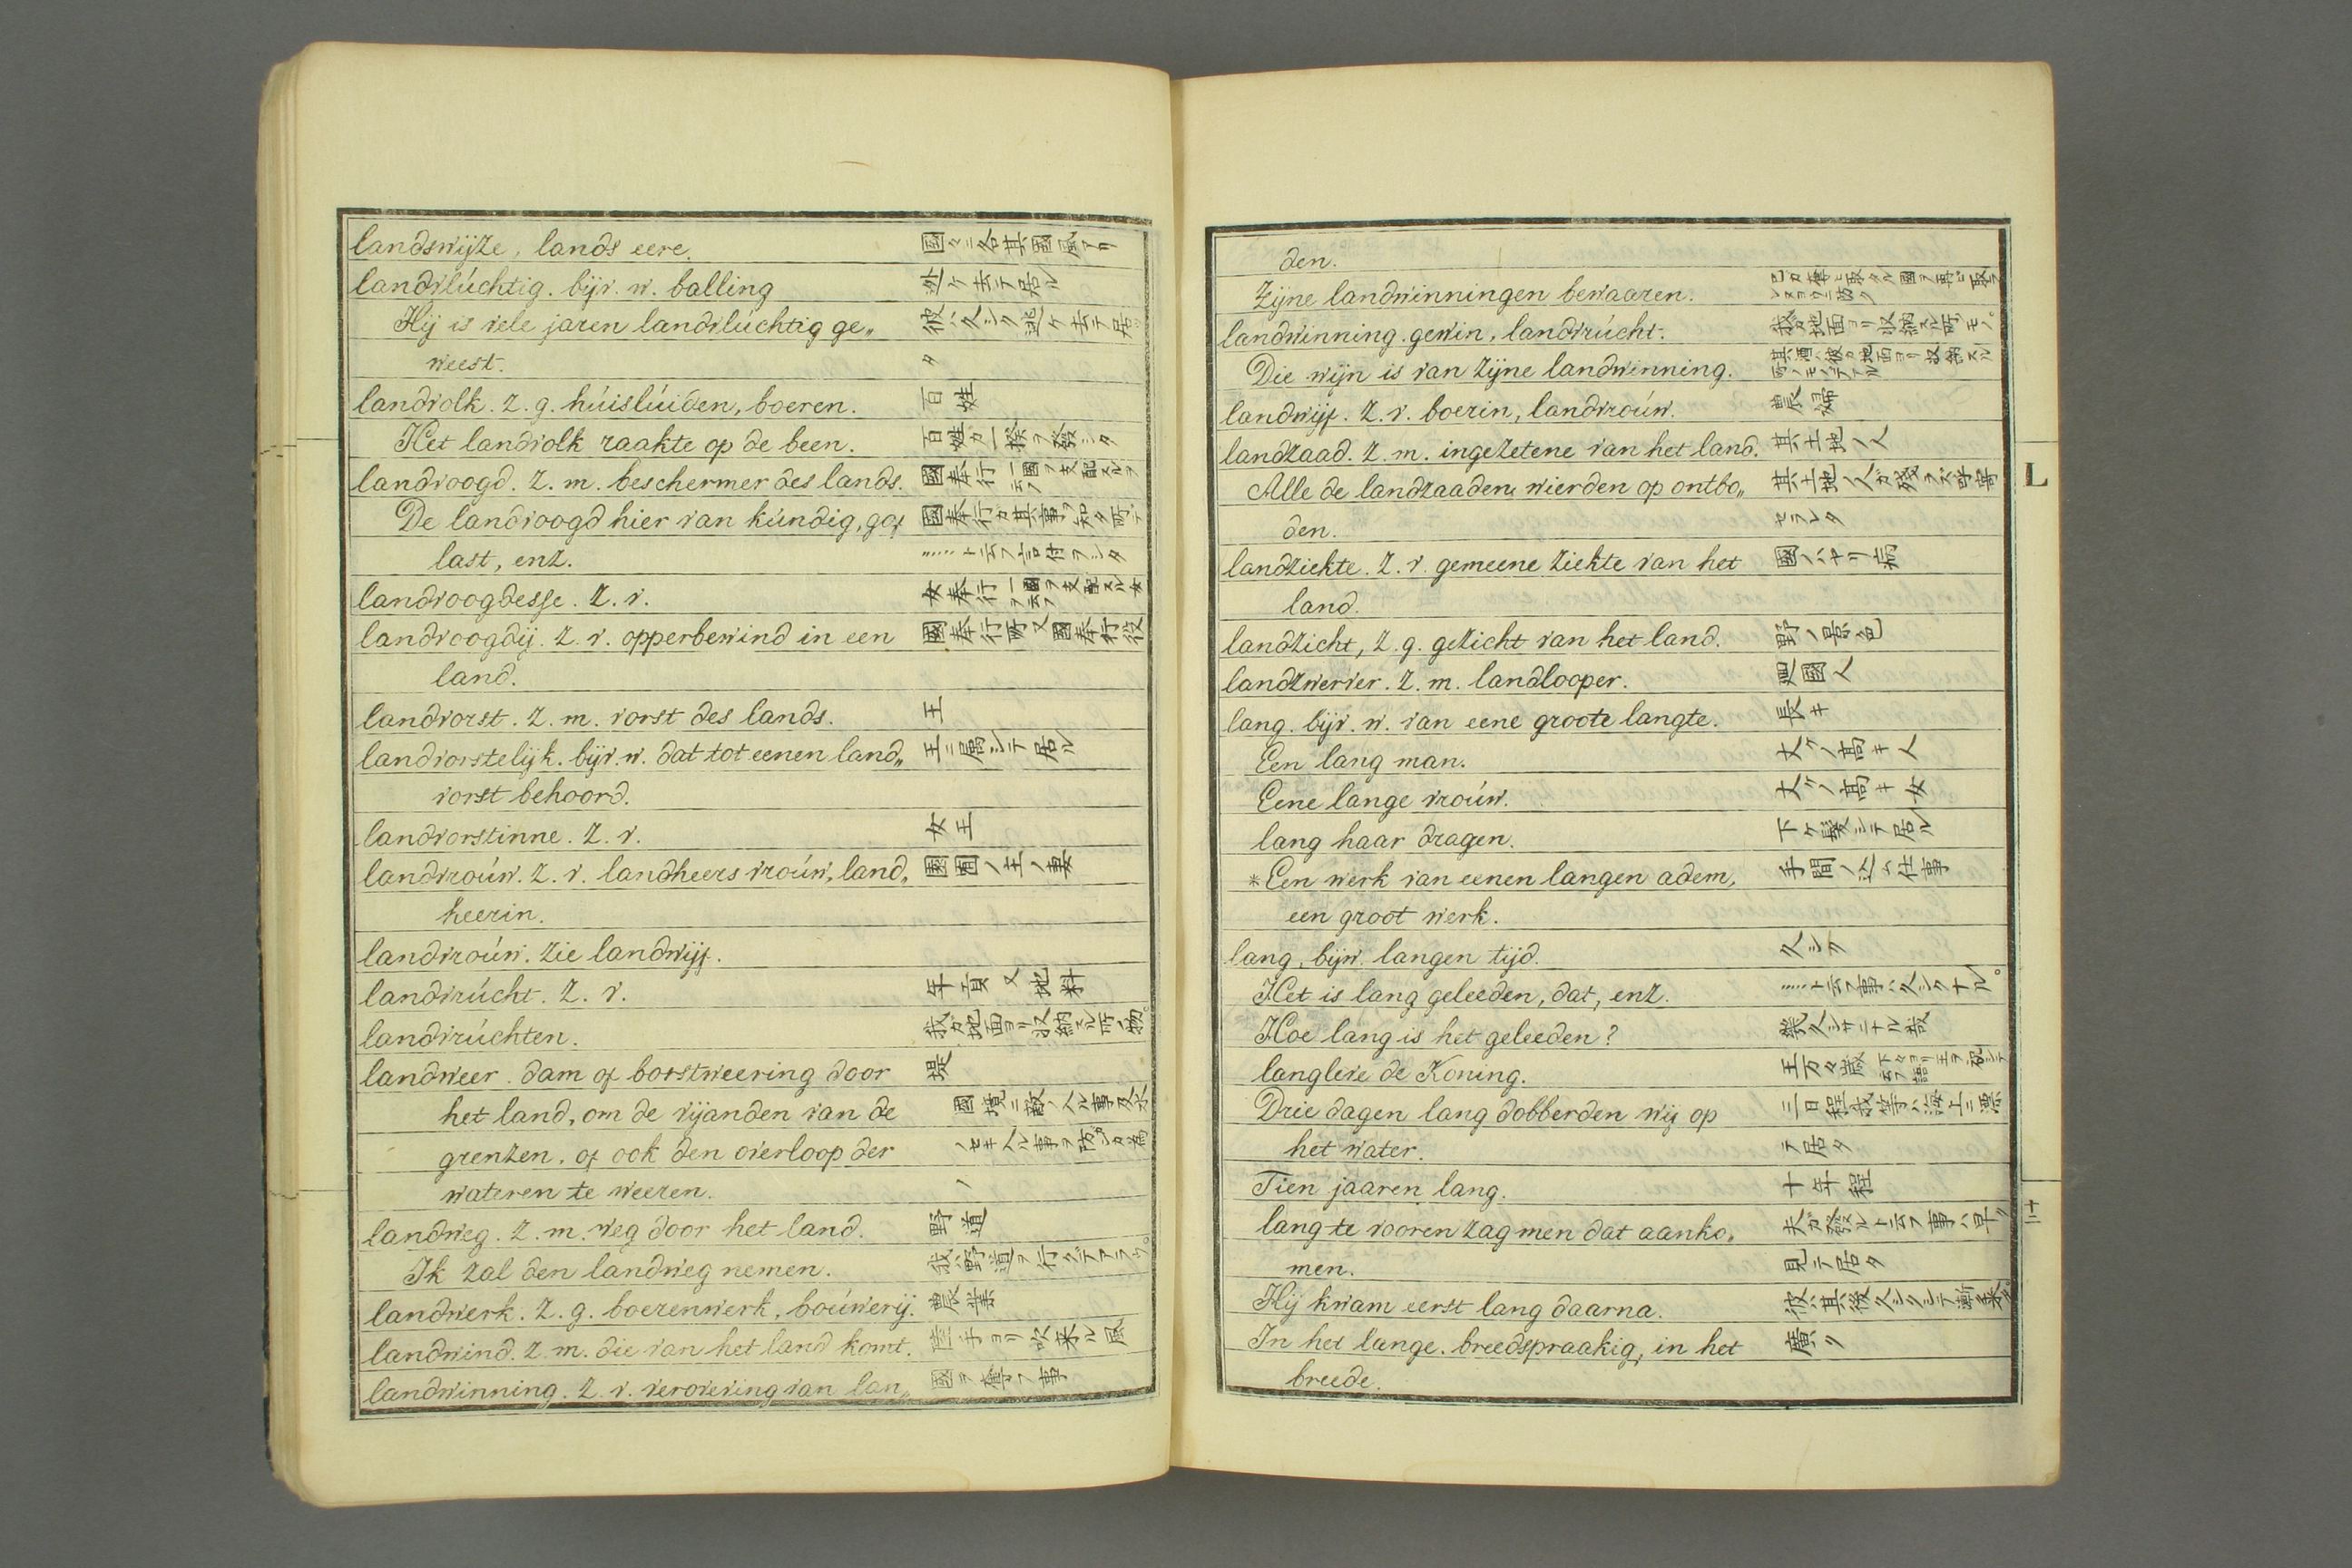 landswijze, lands eere. 國々ニ各其國風アリ
landvlúchtig. bijv. w. balling 迯ケ去テ居ル
Hij is vele jaren landvlúchtig ge„ 彼ハ久シク逃ケ去テ居
weest. タ
landvolk. z. g. húislúiden, boeren. 百姓
Het landvolk raakte op de been. 百姓カ一揆ヲ發シタ
landvoogd. z. m. beschermer des lands. 國奉行 一國ヲ支配スルヲ云フ
De landvoogd hier van kúndig, gaf 國奉行ガ其事ヲ知タ所デ
last, enz. ……ト云フ言付ヲシタ
landvoogdesse. z. v. 女奉行 一國ヲ支配スル女ヲ云フ
landvoogdij. z. v. opperbewind in een 國奉行所又國奉行役
land.
landvorst. z. m. vorst des lands. 王
landvorstelijk. bijv. w. dat tot eenen land„ 王ニ属シテ居ル
vorst behoord.
landvorstinne. z. v. 女王
landvroúw. z. v. landheers vroúw, land„ ノ主ノ妻
heerin.
landvroúw. zie landwijf.
landvrúcht. z. v. 年貢又地料
landvrúchten. 我ガ地面ヨリ収納スル所ノ物。
landweer. dam of borstweering door 堤
het land, om de vijanden van de 國境ニ敵ノ入ル事又水
grenzen, of ook den overloop der ノセキ入ル事ヲ防ク為
wateren te weeren. ノ
landweg. z. m. weg door het land. 野道
Ik zal den landweg nemen. 我野道ヲ行クデアラウ。
landwerk. z. g. boerenwerk, boúwerij. 農業
landwind. z. m. die van het land komt. 陸手ヨリ吹来ル風
landwinning. z. v. verovering van lan„ 國ヲ奪フ事
den.
Zijne landwinningen bewaaren. 己カ奪ヒ取タル國ヲ再ヒ取ラレヌヨウニ防ク
landwinning. gewin, landvrúcht. 我ガ地面ヨリ収納スル所ノモノ。
Die wijn is van zijne landwinning. 其酒ハ彼カ地面ヨリ収納スル所ノモノデアル
landwijf. z. v. boerin, landvroúw. 農婦
landzaad. z. m. ingezetene van het land. 其土地ノ人
Alle de landzaaden wierden op ontbo„ 其土地ノ人ガ殘ラズ呼寄
den. セラレタ
landziekte. z. v. gemeene ziekte van het 國ノハヤリ病
land.
landzicht, z. g. gezicht van het land. 野ノ景色
landzwerver. z. m. landlooper. 廻國人
lang. bijv. w. van eene groote langte. 長キ
Een lang man. 丈ケノ高キ人
Eene lange vroúw. 丈ケノ高キ女
lang haar dragen. 下ケ髪シテ居ル
*Een werk van eenen langen adem, 手間ノ込ム仕事
een groot werk.
lang, bijw. langen tijd. 久シク
Het is lang geleeden, dat, enz. ……ト云フ事ハ久シクナル。
Hoe lang is het geleeden? 幾久シサニナル哉
langleve de Koning. 王万々歳 下々ヨリ王ヲ祝シテ云フ語
Drie dagen lang dobberden wij op 三日程我等ハ海上ニ漂
het water. テ居タ
Tien jaaren lang. 十年程
lang te vooren zag men dat aanko„ 夫ガ發ルト云フ事ハ早ク
men. 見テ居タ
Hij kwam eerst lang daarna. 彼ハ其後久シクシテ漸来タ。
In het lange. breedspraakig, in het 廣ク
breede.
L